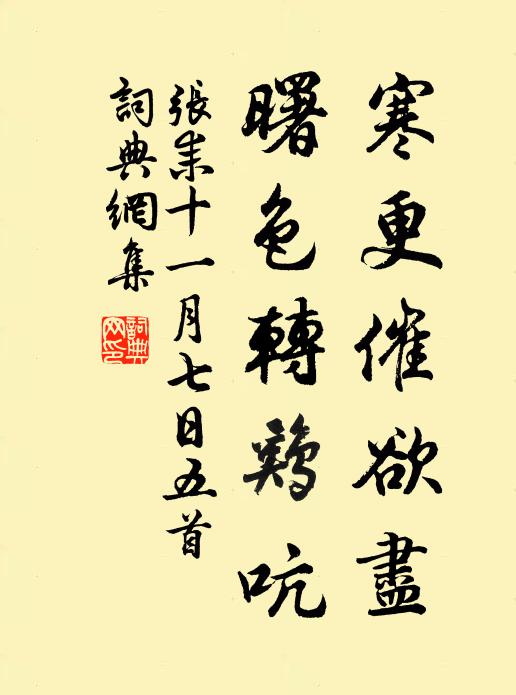 寒更催欲盡
曙色轉鷄吭
張耒十一月七日五首
詞典網集
詞典网印